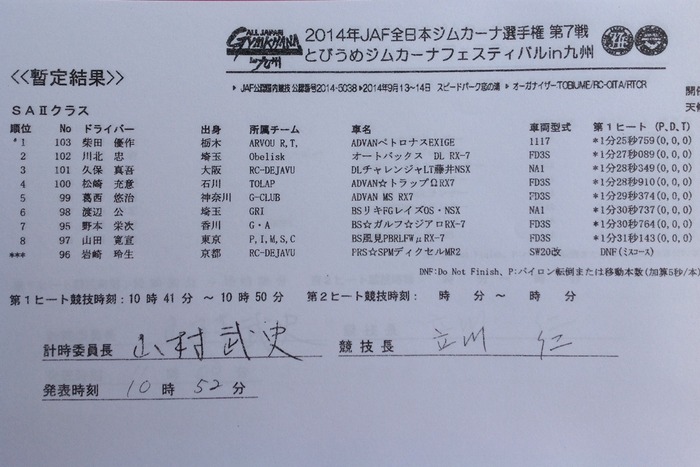 ALL JAPAN
GYMKHANA
in九州
2014年JAF全日本ジムカーナ選手権 第7戦
とびうめジムカーナフェスティバルin九州
<<暫定結果>>
▶JAF公認国内競技 公認番号2014-5038 ▶2014年9月13~14日 スピードパーク恋の浦 ▶オーガナイザー:TOBIUME/RC-OITA/RTCR
開催
天候
SAⅡクラス
順位 No ドライバー 出身 所属チーム 車名 車両型式 第1ヒート (P,D,T)
*1 103 柴田 優作 栃木 ARVOU R,T, ADVANペトロナスEXIGE 1117 *1分25秒759(0,0,0)
2 102 川北 忠 埼玉 Obelisk オートバックス DL RX-7 FD3S *1分27秒089(0,0,0)
3 101 久保 真吾 大阪 RC-DEJAVU DLチャレンジャLT藤井NSX NA1 *1分28秒349(0,0,0)
4 100 松崎 充意 石川 TOLAP ADVAN☆トラップΩRX7 FD3S *1分28秒910(0,0,0)
5 99 葛西 悠治 神奈川 G-CLUB ADVAN MS RX7 FD3S *1分29秒374(0,0,0)
6 98 渡辺 公 埼玉 GRI BSリキFGレイズOS・NSX NA1 *1分30秒737(0,0,0)
7 95 野本 栄次 香川 G・A BS☆ガルフ☆ジアロRX-7 FD3S *1分30秒764(0,0,0)
8 97 山田 寛宣 東京 P,I,M,S,C BS風見PBRLFWμRX-7 FD3S *1分31秒143(0,0,0)
*** 96 岩崎 玲生 京都 RC-DEJAVU FRS☆SPMディクセルMR2 SW20改 DNF(ミスコース)
DNF:Do Not Finish、P:パイロン転倒または移動本数(加算5秒/本)
第1ヒート競技時刻:10時41分 ~10時50分 第2ヒート競技時刻: 時 分 ~ 時 分
計時委員長 山村武史 競技長 立川 仁
発表時刻 10時 52分